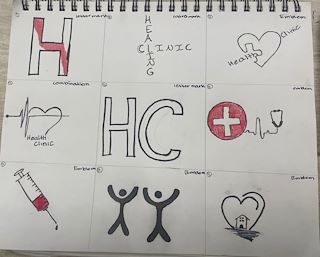 Lettermark
H
wordmark
HEALING
CLINIC
Emblem
Health
Clinic
Combination
Health
Clinic
lettermark
HC
emblem
Emblem
Emblem
Emblem